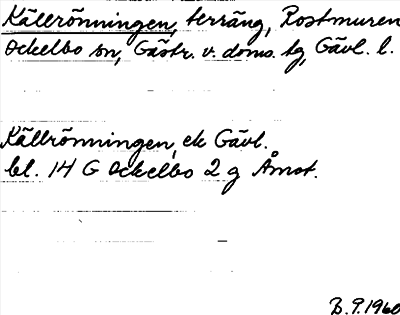 Källrönningen, terräng, Rostmuren
Ockelbo sn, Gästr. v. doms. tg, Gävl. l.
Källrönningen, ek Gävl.
bl. 14 G Ockelbo 2 g Åmot.
B.9.1960